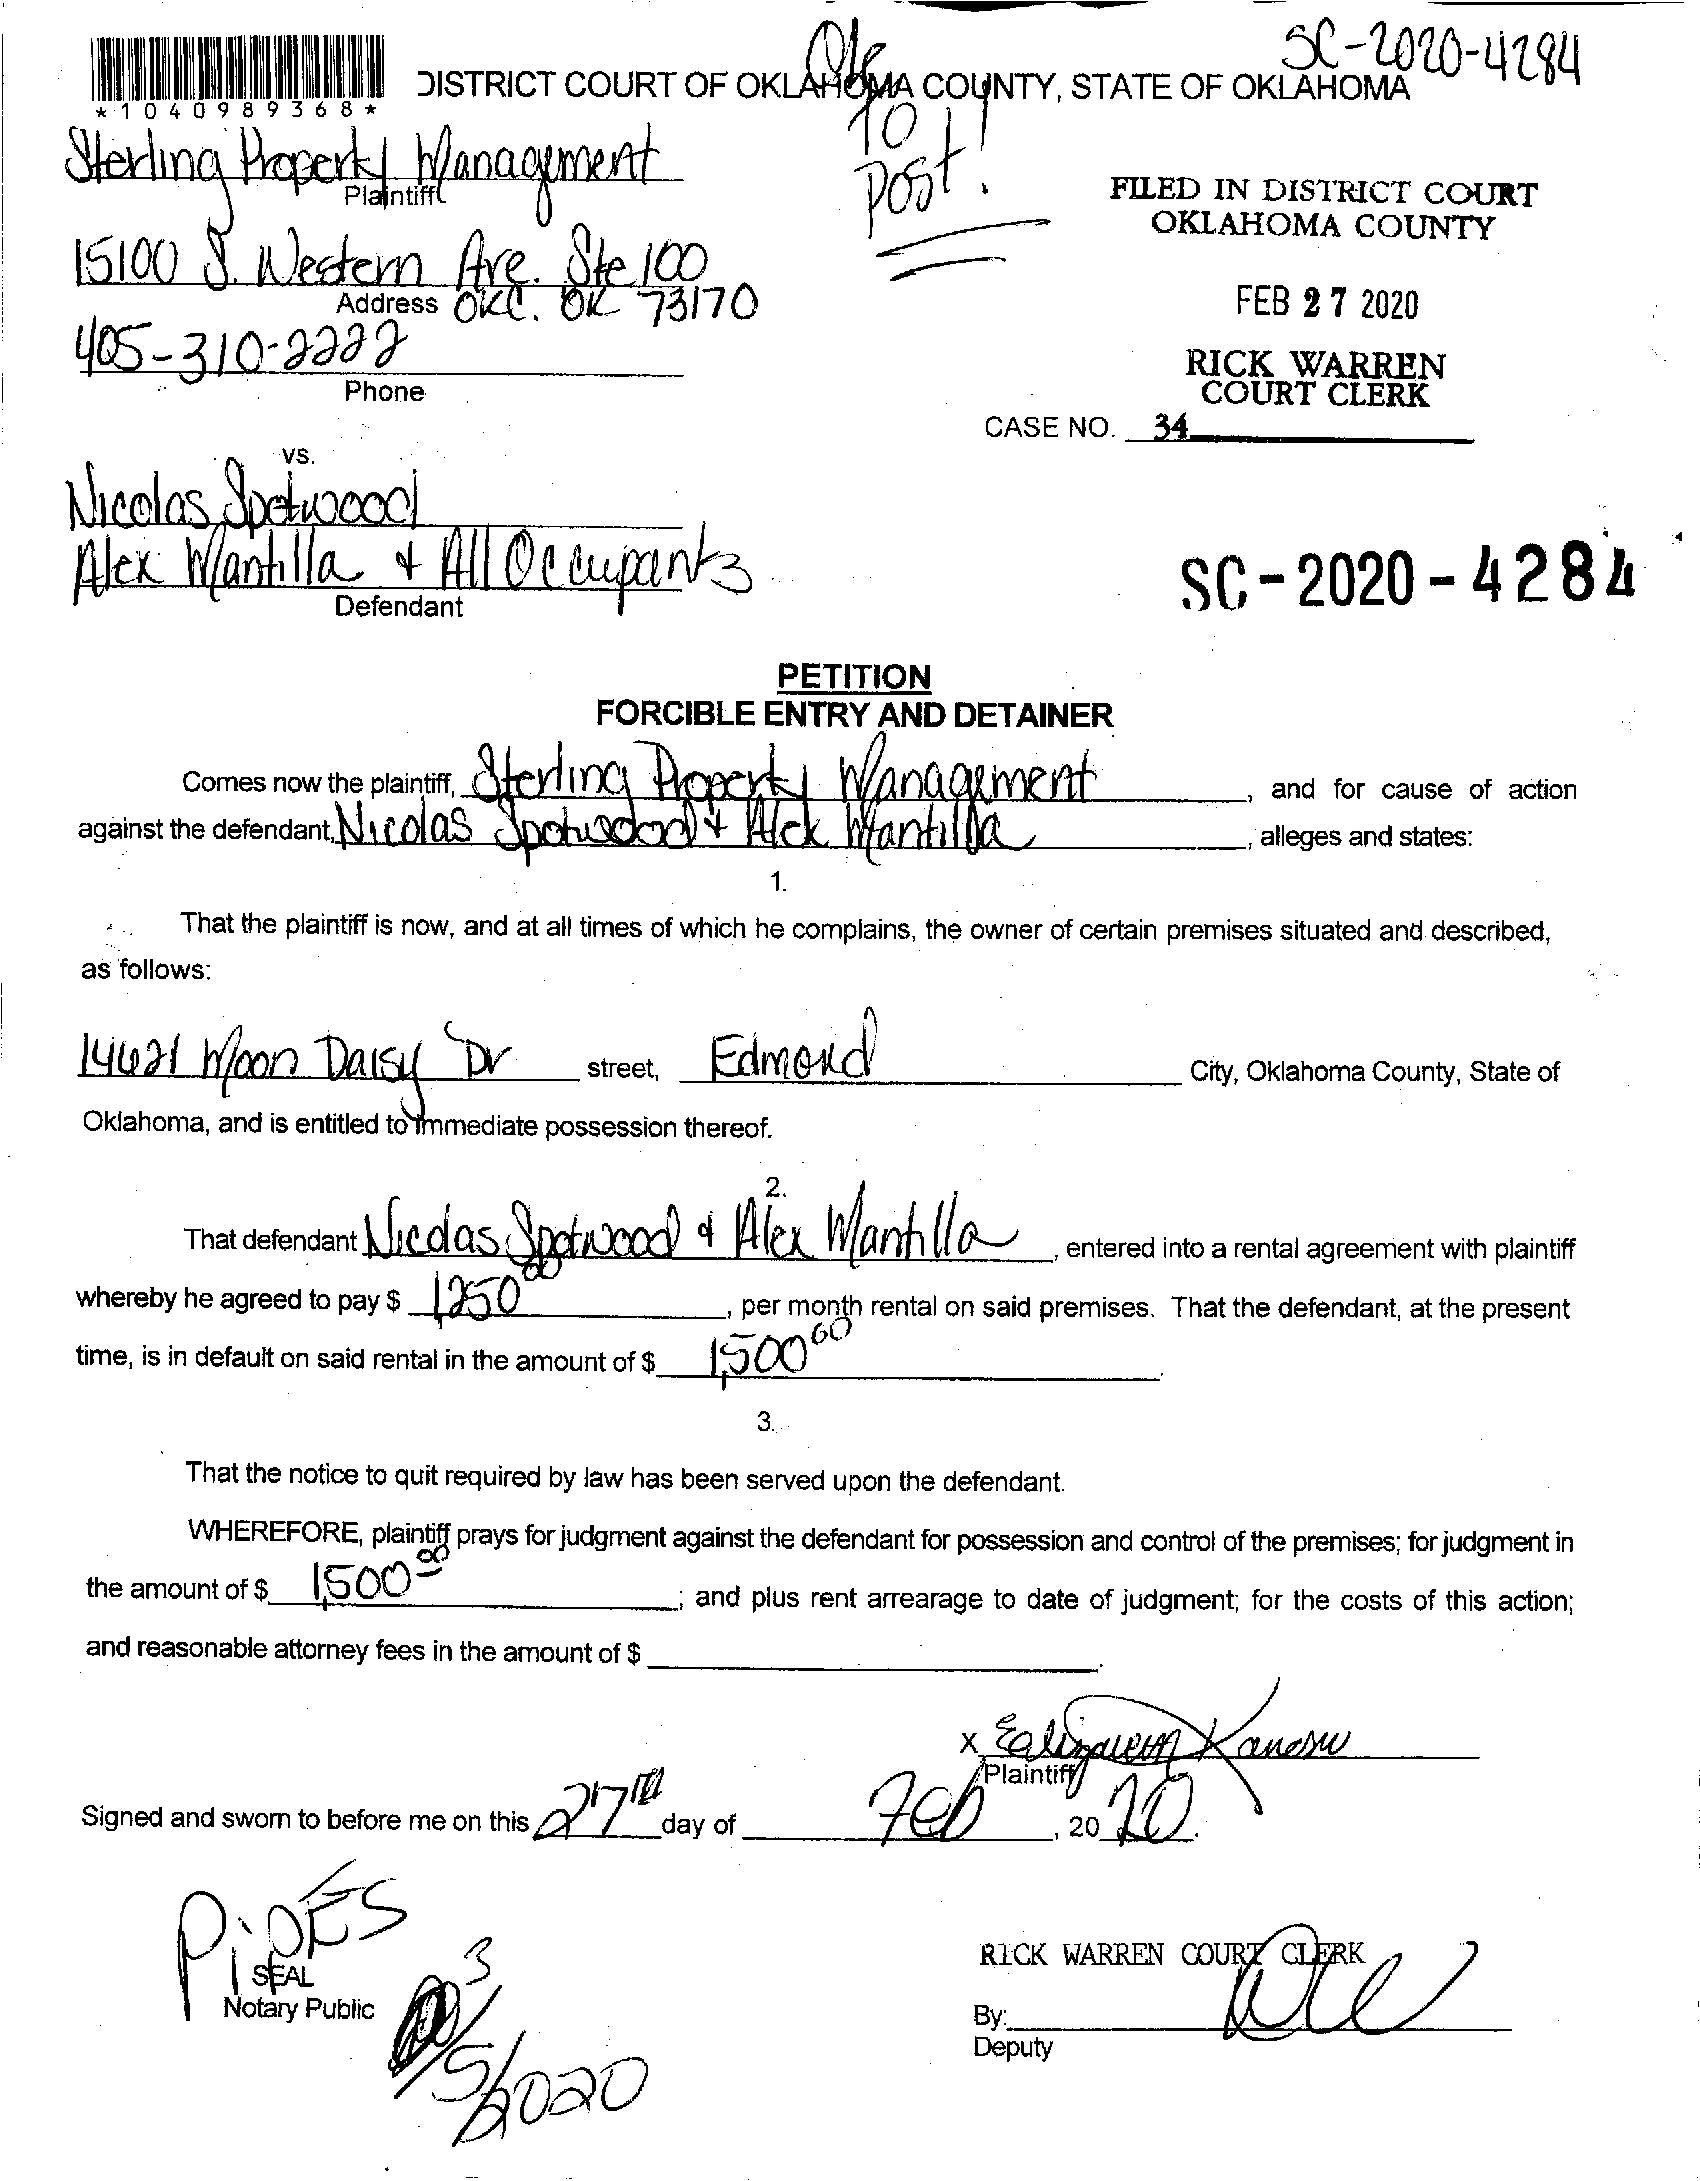 SC-2020-4284
DISTRICT COURT OF OKLAHOMA COUNTY, STATE OF OKLAHOMA
*1040989368*
Ok
to
post!
Sterling Property Management
Plaintiff
FILED IN DISTRICT COURT
OKLAHOMA COUNTY
15100 S. Western Ave. Ste 100
Address OKC. OK 73170
FEB 27 2020
405-310-2222
Phone
RICK WARREN
COURT CLERK
CASE NO. 34
vs.
Nicolas Spotwood
Alex Mantilla + All Occupants
Defendant
SC-2020-4284
PETITION
FORCIBLE ENTRY AND DETAINER
Comes now the plaintiff, Sterling Property Management, and for cause of action
against the defendant, Nicolas Spotwood + Alex Mantilla, alleges and states:
1.
That the plaintiff is now, and at all times of which he complains, the owner of certain premises situated and described,
as follows:
14621 Moon Daisy Dr street, Edmond City, Oklahoma County, State of
Oklahoma, and is entitled to immediate possession thereof.
2.
That defendant Nicolas Spotwood + Alex Mantilla, entered into a rental agreement with plaintiff
whereby he agreed to pay $ 1250 00, per month rental on said premises. That the defendant, at the present
time, is in default on said rental in the amount of $ 1,500 00.
3.
That the notice to quit required by law has been served upon the defendant.
WHEREFORE, plaintiff prays for judgment against the defendant for possession and control of the premises; for judgment in
the amount of $ 1,500 00; and plus rent arrearage to date of judgment; for the costs of this action;
and reasonable attorney fees in the amount of $ .
X
Plaintiff
Signed and sworn to before me on this 27th day of Feb, 2020.
SEAL
Notary Public
3/5/2020
RICK WARREN COURT CLERK
By:
Deputy